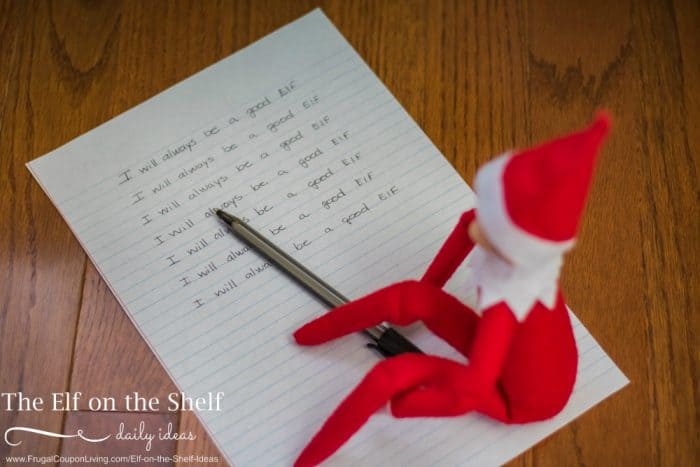 I will always be a good Elf
I will always be a good Elf
I will always be a good Elf
I will always be a good Elf
I will always be a good Elf
I will always be a good Elf
I will always be a good Elf
The Elf on the Shelf
daily ideas
www.FrugalCouponLiving.com/Elf-on-the-Shelf-Ideas